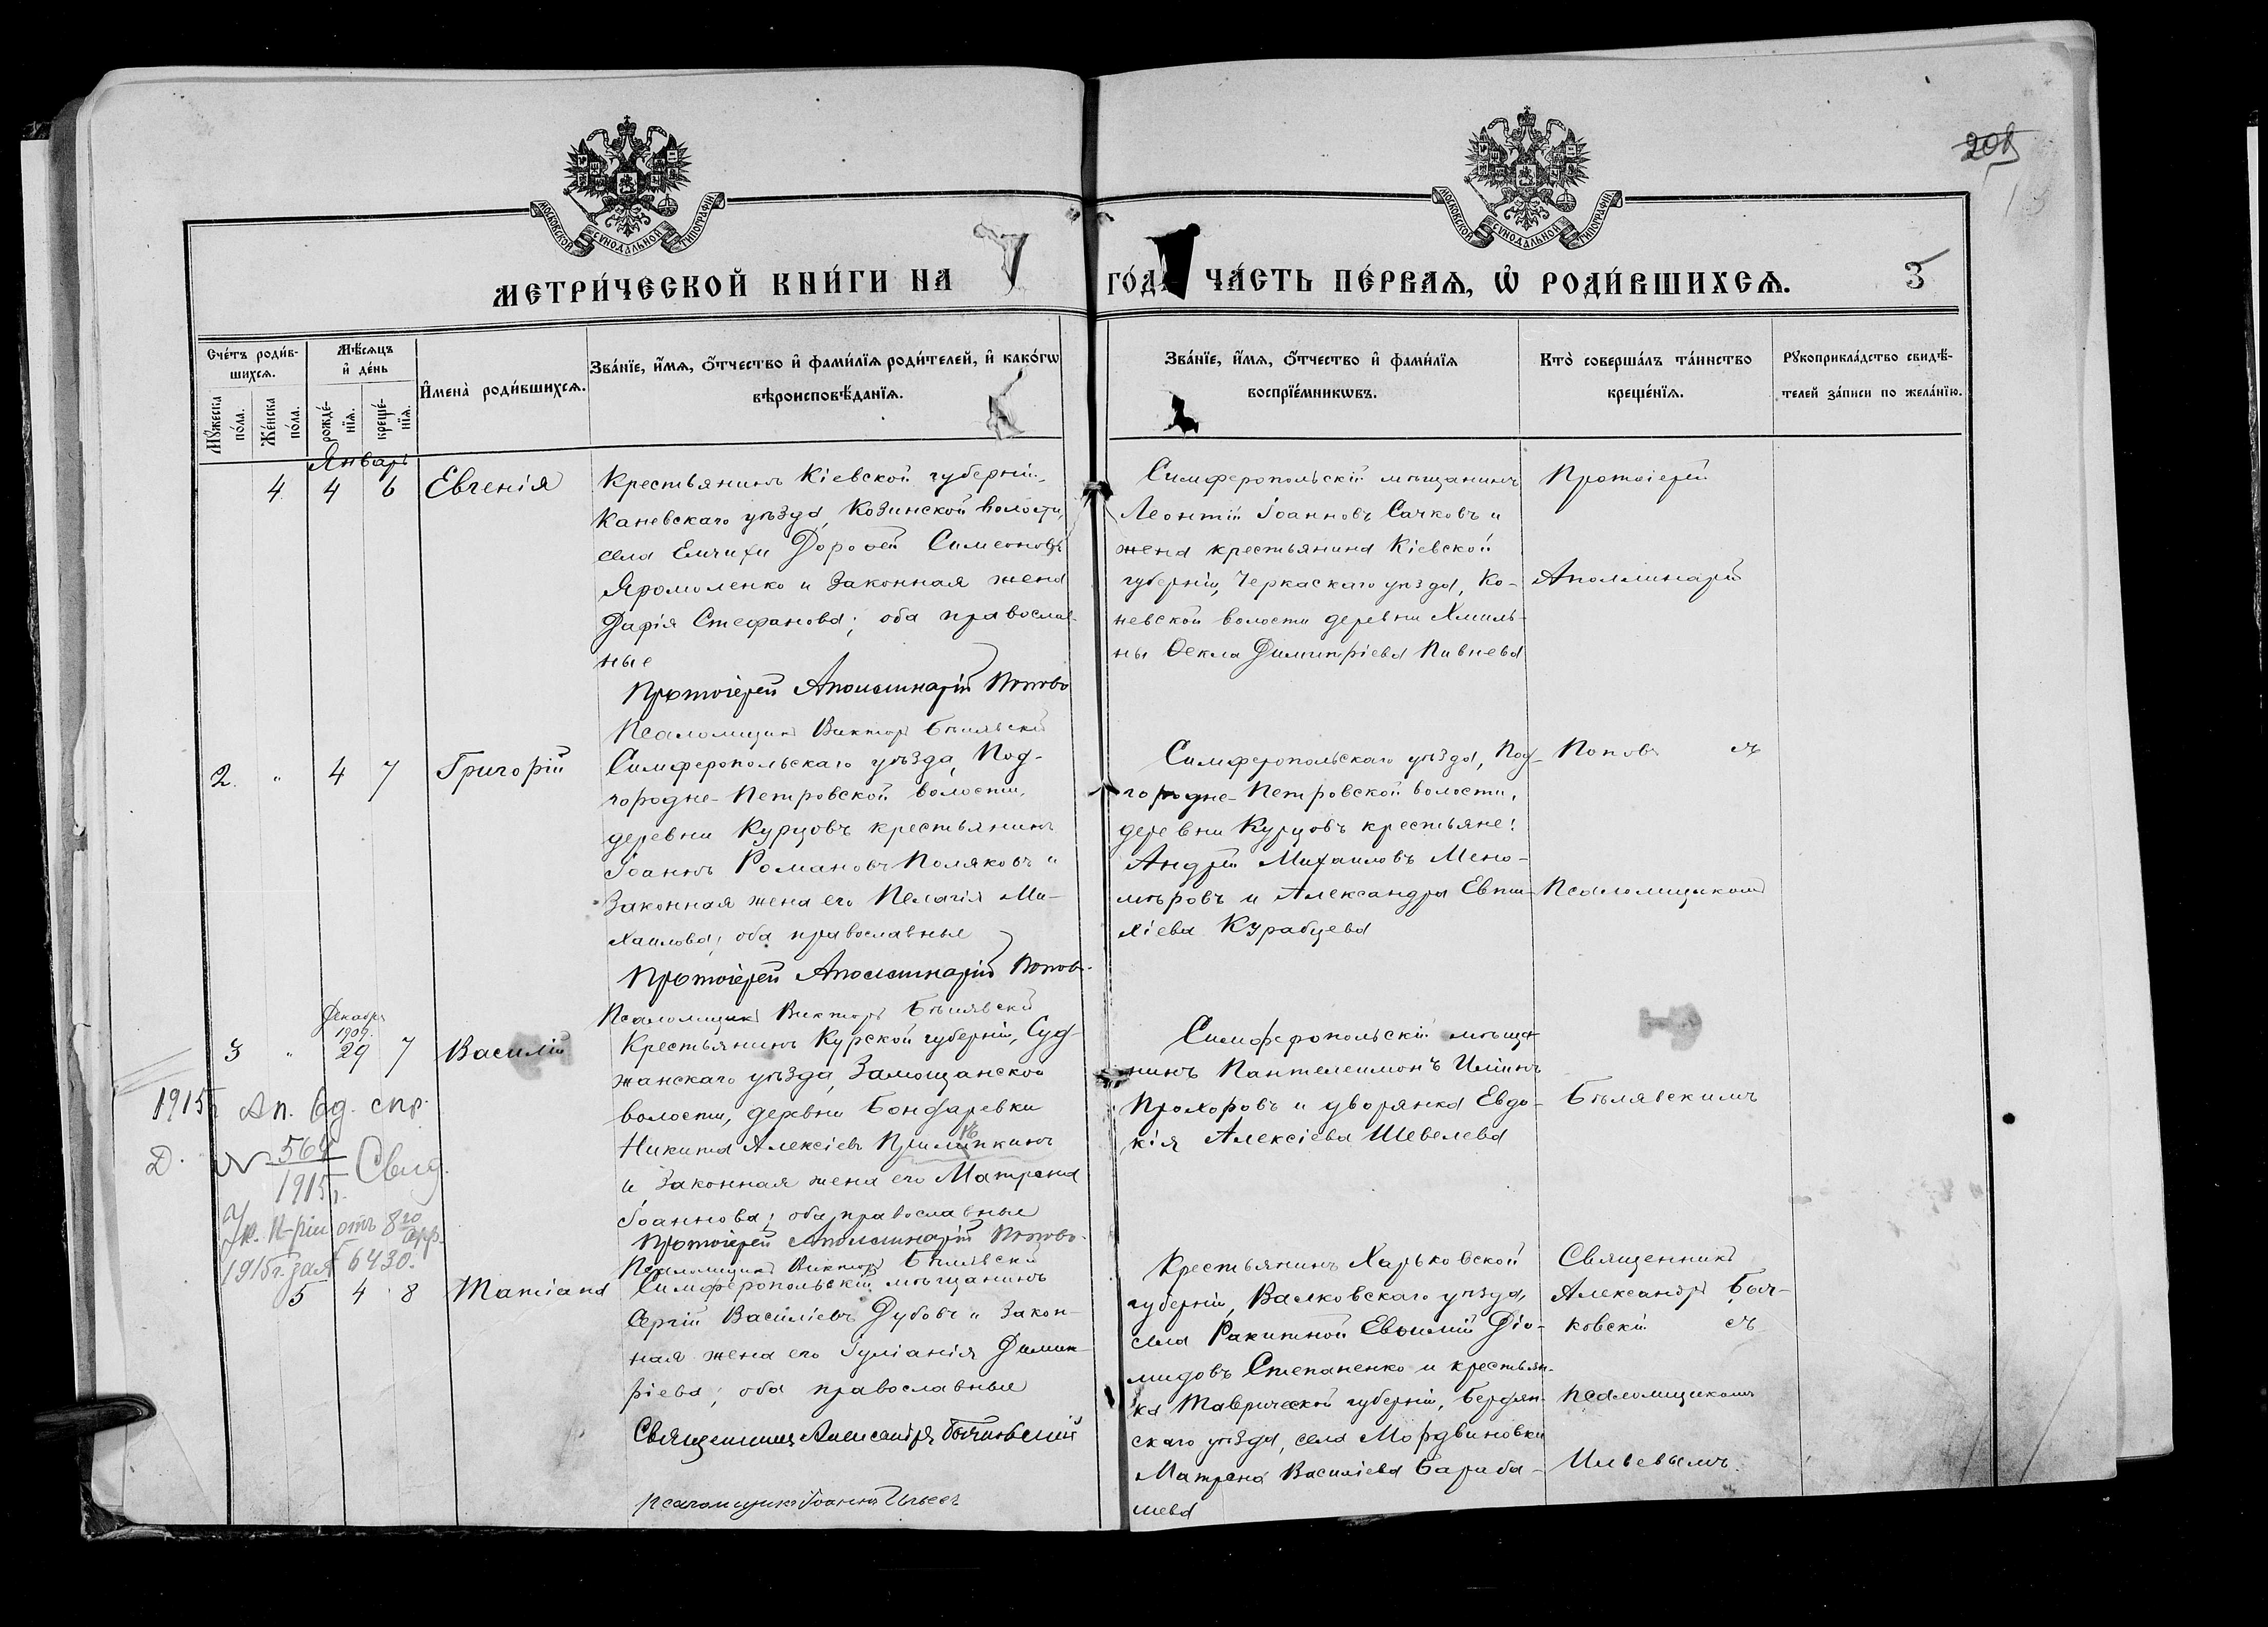 208
МОСКОВСКОЙ СѴНОДАЛЬНОЙ ТИПОГРАФІИ.
МОСКОВСКОЙ СѴНОДАЛЬНОЙ ТИПОГРАФІИ.
МЕТРИ́ЧЕСКОЙ КНИ́ГИ НА
ГО́ДЪ ЧА́СТЬ ПЕ́РВАѦ, Ѡ РОДИ́ВШИХСѦ.
3
Сче́тъ роди́в-
шихсѧ.
Мꙋ́жеска по́ла.
Же́нска по́ла.
Мѣ́сѧцъ и де́нь
рожде́-
нїѧ.
креще́-
нїѧ.
И҆мена̀ роди́вшихсѧ.
Зва́нїе, и҆́мѧ, ѻ҆́тчество и҆ фами́лїѧ роди́телей, и҆ како́гѡ
вѣроисповѣ́данїѧ.
Зва́нїе, и҆́мѧ, ѻ҆́тчество и҆ фами́лїѧ
воспрїе́мникѡвъ.
Кто̀ соверша́лъ та́инство
креще́нїѧ.
Рꙋкоприкла́дство свидѣ́-
телей за́писи по жела́нїю.
Январь
4 4 6 Евгенія
Крестьянинъ Кіевской губерніи,
Каневскаго уѣзда, Козинской волости,
села Емчихи Дорофей Симеоновъ
Яромоленко и законная жена
Дарія Стефанова; оба православ-
ные
Протоіерей Аполлинарій Поповъ
Псаломщикъ Викторъ Бѣлявскій
Симферопольскій мѣщанинъ
Леонтій Іоанновъ Сачковъ и
жена крестьянина Кіевской
губерніи, Черкаскаго уѣзда, Ко-
невской волости деревни Хмиль-
ны Ѳекла Димитріева Пивнева
Протоіерей
Аполлинарій
2 " 4 7 Григорій
Симферопольскаго уѣзда, Под-
городне-Петровской волости,
деревни Курцовъ крестьянинъ
Іоаннъ Романовъ Поляковъ и
законная жена его Пелагія Ми-
хаилова; оба православные
Протоіерей Аполлинарій Поповъ
Псаломщикъ Викторъ Бѣлявскій
Симферопольскаго уѣзда, Под-
городне-Петровской волости,
деревни Курцовъ крестьяне:
Андрей Михаиловъ Мено-
мѣровъ и Александра Евти-
хіева Курабцева
Поповъ съ
Псаломщикомъ
Декабря
1909.
3 " 29 7 Василій
Крестьянинъ Курской губерніи, Суд-
жанскаго уѣзда, Замощанской
волости, деревни Бондаревки
Никита Алексіевъ Прилипкинъ
и законная жена его Матрена
Іоаннова; оба православные
Протоіерей Аполлинарій Поповъ
Псаломщикъ Викторъ Бѣлявскій
Симферопольскій мѣща-
нинъ Пантелеимонъ Иліинъ
Прохоровъ и дворянка Евдо-
кія Алексіева Шевелева
Бѣлявскимъ
1915 Ап. 6д. спр.
Д. № 564
1915 г. Свид.
Ук. К-ріи отъ 8го
1915г. за № 6430.
5 4 8 Татіана
Симферопольскій мѣщанинъ
Сергій Василіевъ Дубовъ и закон-
ная жена его Іуліанія Димит-
ріева; оба православные
Священникъ Александръ Бычковскій
псаломщикъ Іоаннъ Ильевъ
Крестьянинъ Харьковской
губерніи, Валковскаго уѣзда,
села Ракитной Евѳимій Діо-
мидовъ Степаненко и крестьян-
ка Таврической губерніи, Бердян-
скаго уѣзда, села Мордвиновки
Матрена Василіева Бараба-
шева
Священникъ
Александръ Быч-
ковскій съ
псаломщикомъ
Ильевымъ.